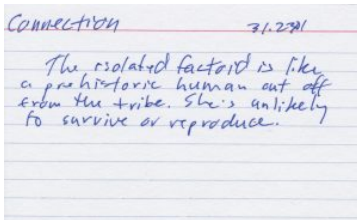 Connection
The isolated factoid is like
a prehistoric human cut off
from the tribe. She's unlikely
to survive or reproduce.